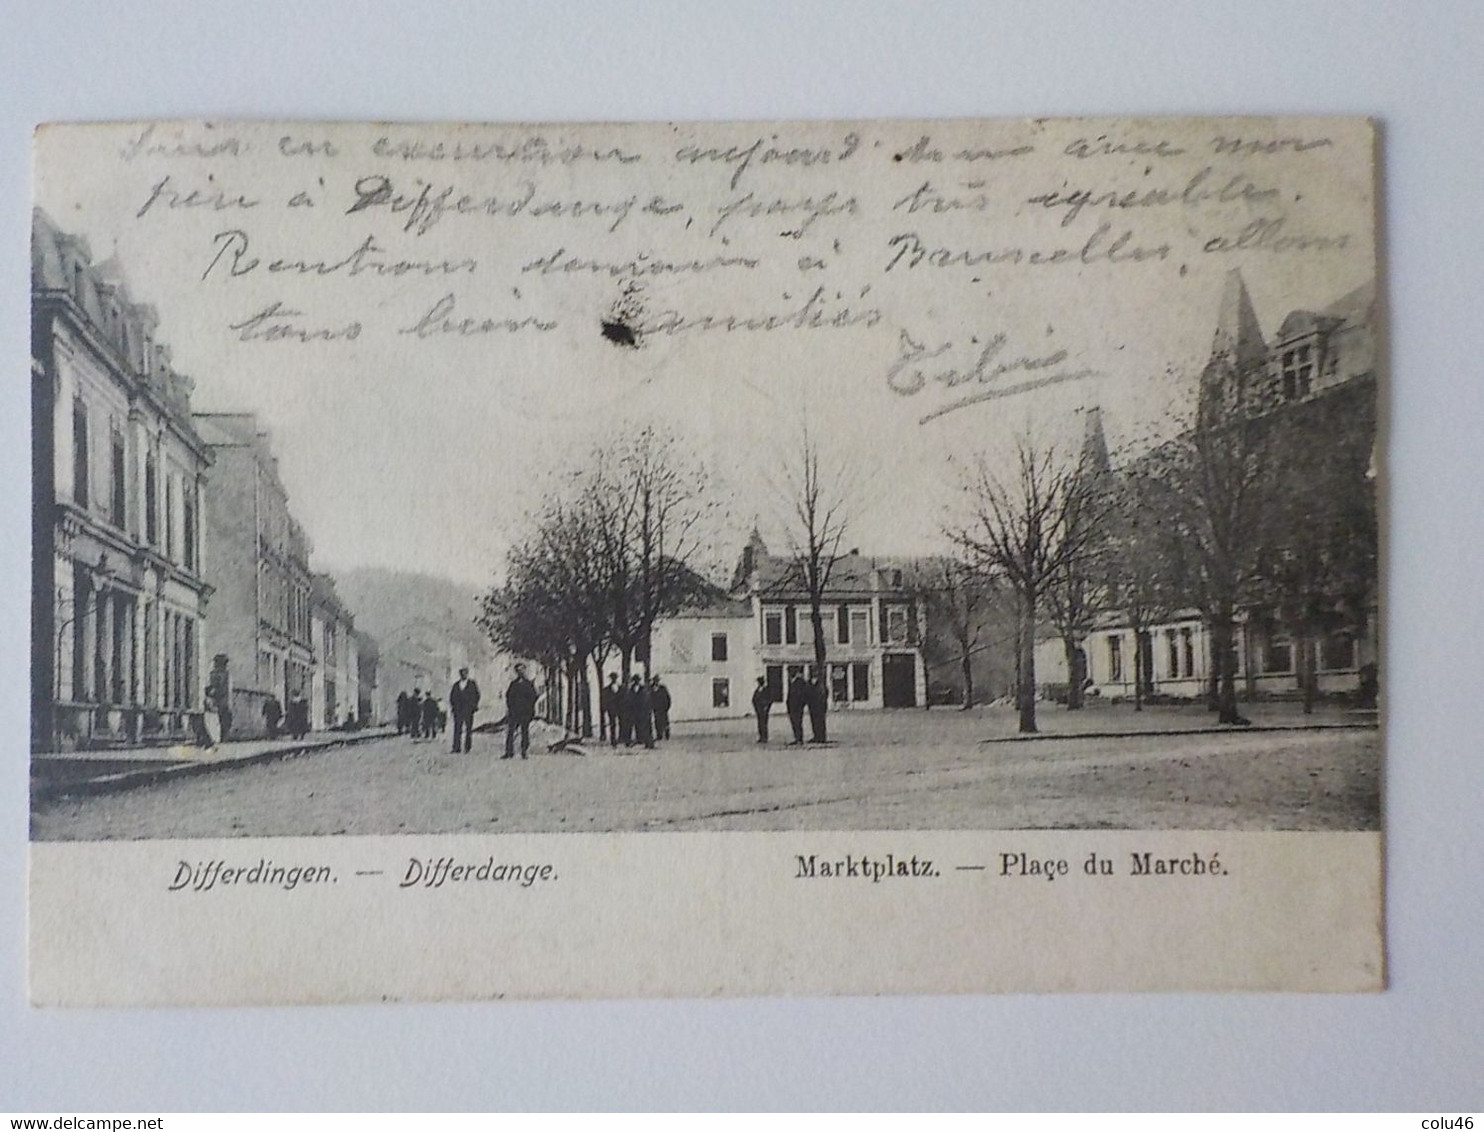 Suis en excursion aujourd'hui avec mon
père à Differdange, pays très agréable.
Rentrons demain à Bruxelles, allons
tous bien amitiés
Differdingen. — Differdange.
Marktplatz. — Plaçe du Marché.
www.delcampe.net
colu46